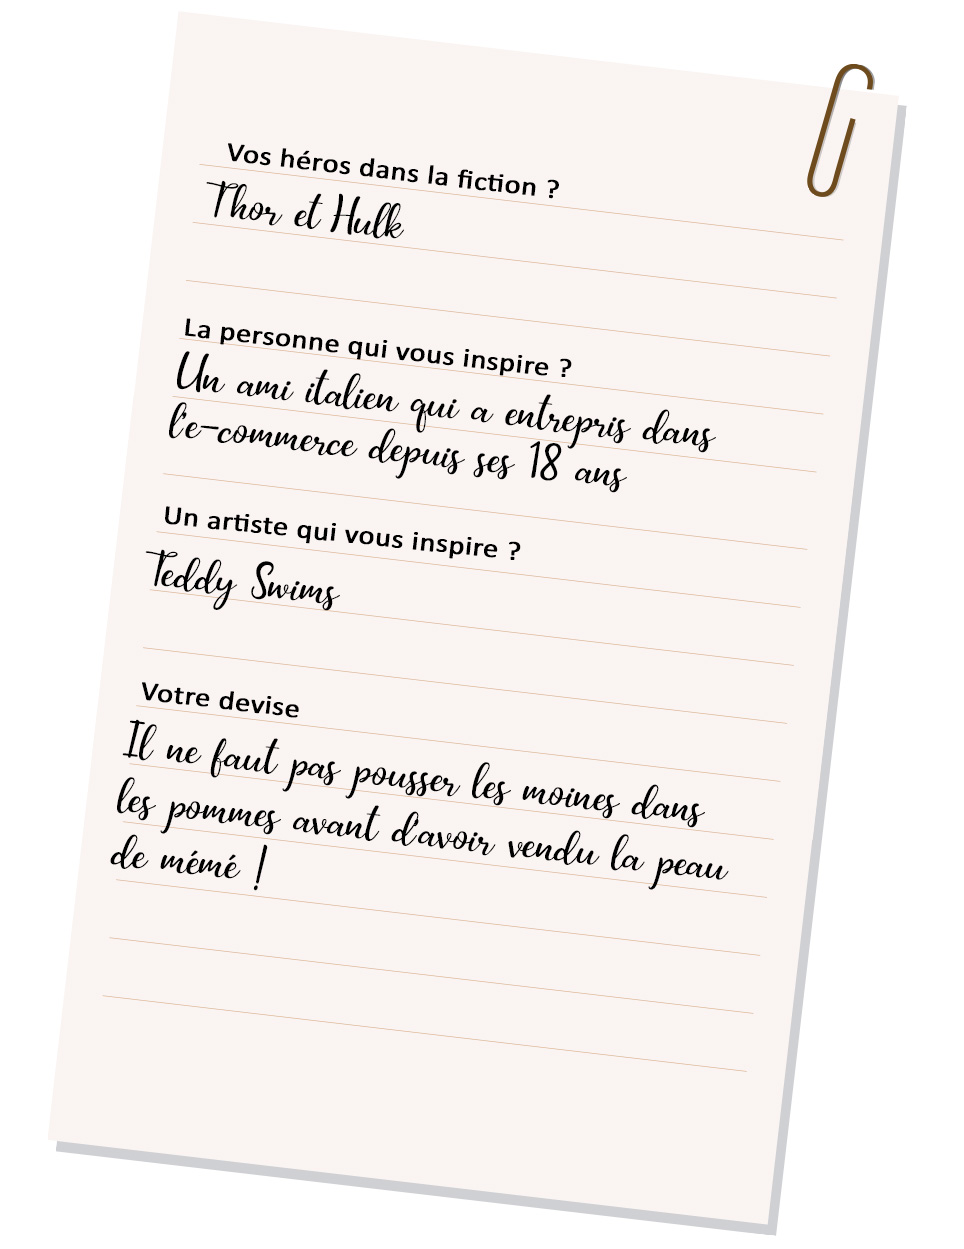 Vos héros dans la fiction ?
Thor et Hulk
La personne qui vous inspire ?
Un ami italien qui a entrepris dans
l'e-commerce depuis ses 18 ans
Un artiste qui vous inspire ?
Teddy Swims
Votre devise
Il ne faut pas pousser les moines dans
les pommes avant d'avoir vendu la peau
de mémé !